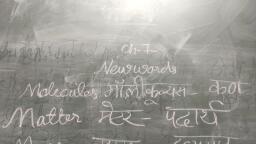 Ch-7
New words
Moleculas मॉलीक्यूल्स - कण
Matter मैटर - पदार्थ